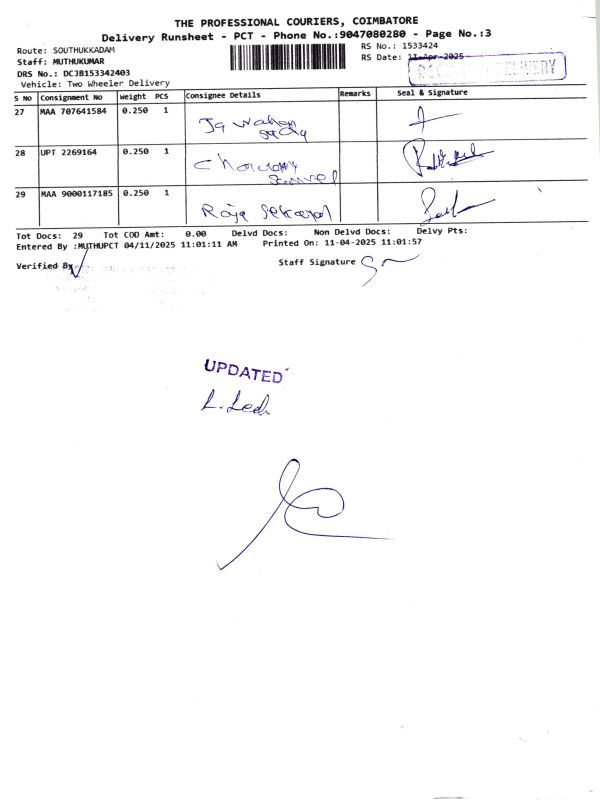 THE PROFESSIONAL COURIERS, COIMBATORE
Delivery Runsheet - PCT - Phone No.:9047080280 - Page No.:3
Route: SOUTHUKKADAM
RS No.: 1533424
Staff: MUTHUKUMAR
RS Date: 11-Apr-2025
DRS No.: DCJB153342403
DELIVERY
Vehicle: Two Wheeler Delivery
S No Consignment No Weight PCS Consignee Details Remarks Seal & Signature
27 MAA 707641584 0.250 1
28 UPT 2269164 0.250 1
29 MAA 9000117185 0.250 1 Raja
Tot Docs: 29 Tot COD Amt: 0.00 Delvd Docs: Non Delvd Docs: Delvy Pts:
Entered By :MUTHUPCT 04/11/2025 11:01:11 AM Printed On: 11-04-2025 11:01:57
Verified By Staff Signature
UPDATED